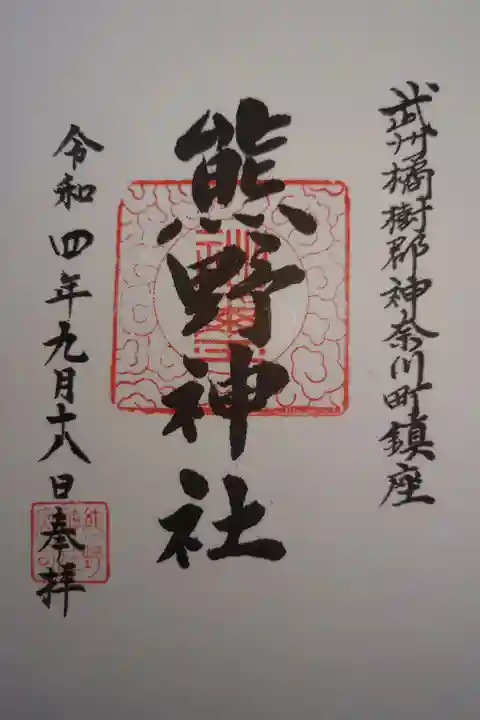 武州橘樹郡神奈川町鎮座
熊野神社
令和四年九月十八日参拝